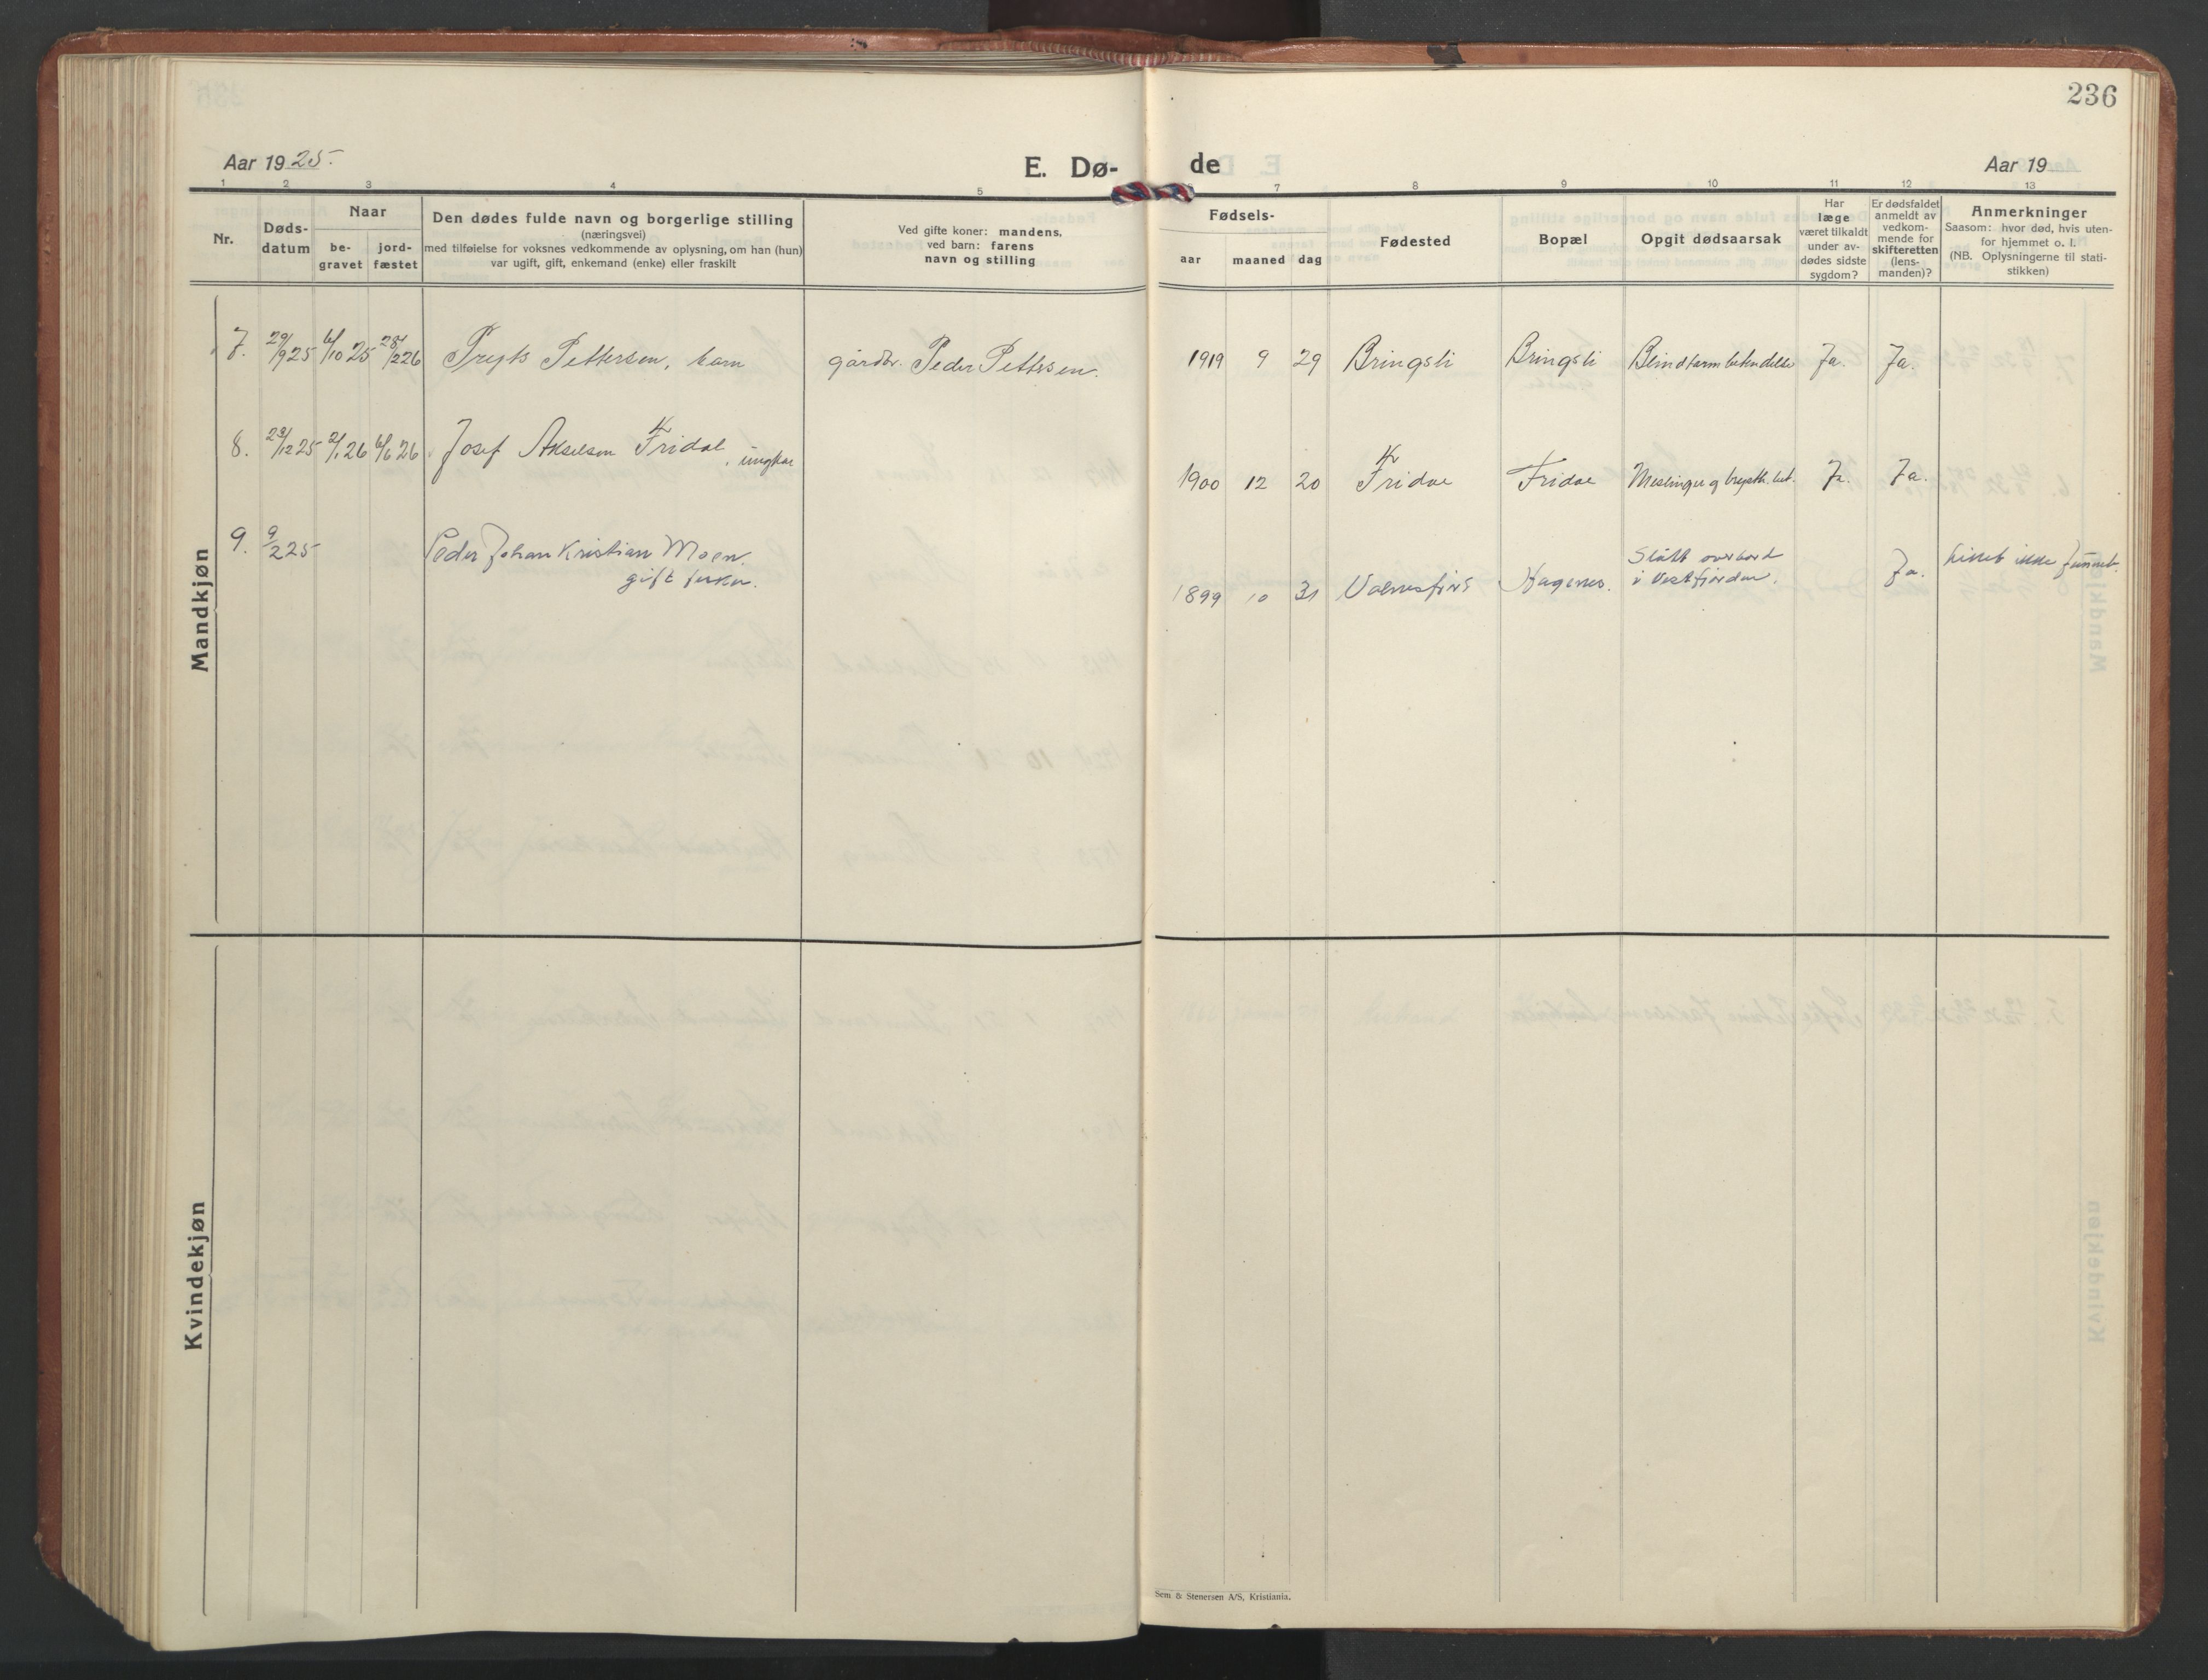 236
Aar 1925.
E. Dø- de
Aar 19
1 2 3 4 5 7 8 9 10 11 12 13
Nr.
Døds-
datum
Naar
be-
gravet
jord-
fæstet
Den dødes fulde navn og borgerlige stilling
(næringsvei)
med tilføielse for voksnes vedkommende av oplysning, om han (hun)
var ugift, gift, enkemand (enke) eller fraskilt
Ved gifte koner: mandens,
ved barn: farens
navn og stilling
Fødsels-
aar maaned dag
Fødested
Bopæl
Opgit dødsaarsak
Har
læge
været tilkaldt
under av-
dødes sidste
sygdom?
Er dødsfaldet
anmeldt av
vedkom-
mende for
skifteretten
(lens-
manden)?
Anmerkninger
Saasom: hvor død, hvis uten-
for hjemmet o. l.
(NB. Oplysningerne til stati-
stikken)
Mandkjøn
7. 29/9 25 6/10 25 28/2 26 Pettersen, barn gårdbr. Peder Pettersen. 1919 9 29 Bringsli Bringsli Blindtarmbetendelse Ja. Ja.
8. 29/12 25 2/1 26 6/6 26 Josef Akselsen Fridal, ungkar 1900 12 20 Fridal Fridal Meslinger og Ja. Ja.
9. 9/2 25 Peder Johan Kristian Moen.
gift fisker. 1899 10 31 Valnesfjord Hagenes. Slått overbord
i Vestfjorden. Ja. Liket ikke funnet.
Kvindekjøn
Sem & Stenersen A/S, Kristiania.